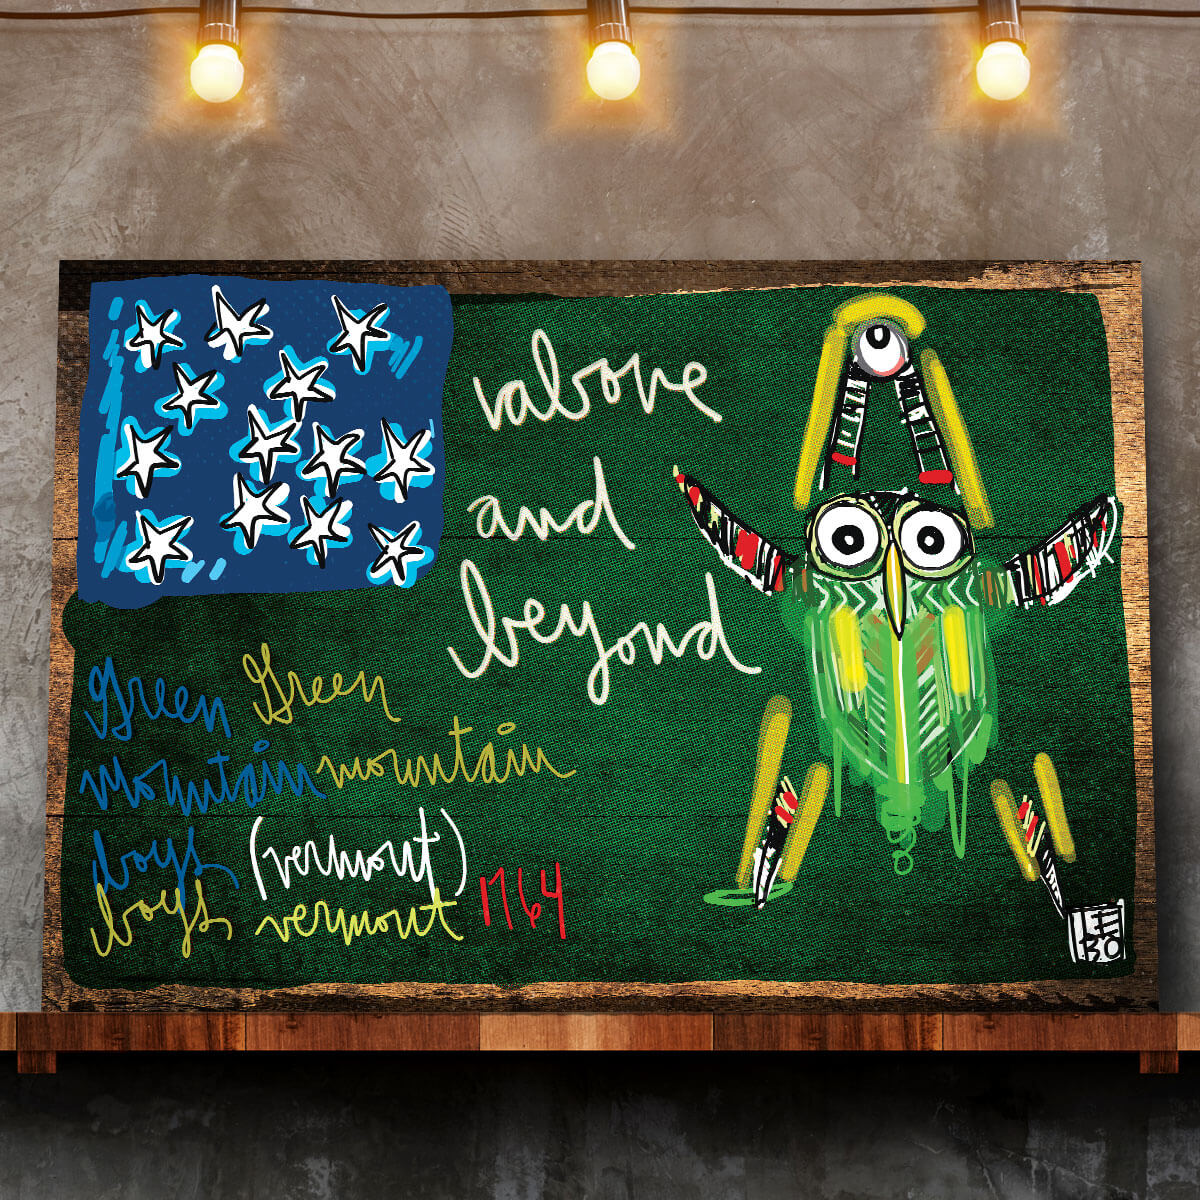 above
and
beyond
Green Green
mountain mountain
boys (vermont)
boys vermont 1764
LEBO